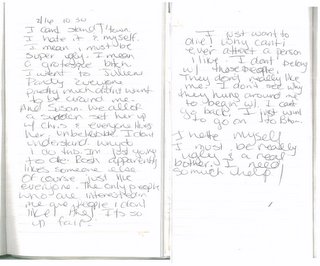 I can't stand I how
I hate it & myself.
I mean, I must be
super ugly. I mean
I went to Julien's
Party everyone
pretty much didnt want
to be around me.
And Susan. We all of
a sudden set her up
w/ Chris & everyone likes
her. Unbelievable I don't
understand why
I do this. Im just going
to die. Rosh apparently
likes someone else
Of course just like
everyone. The only people
who are interested in
me are people I don't
like! Its so
un fair.
I just want to
die! Why can't I
ever attract a person
I like. I dont belong
w/ those people.
They dont really like
me. I don't see why
they hung around me
to begin w/. I cant
go back. I just want
to go on to
I hate myself
I must be really
ugly & a real
bother. I need
so much help!